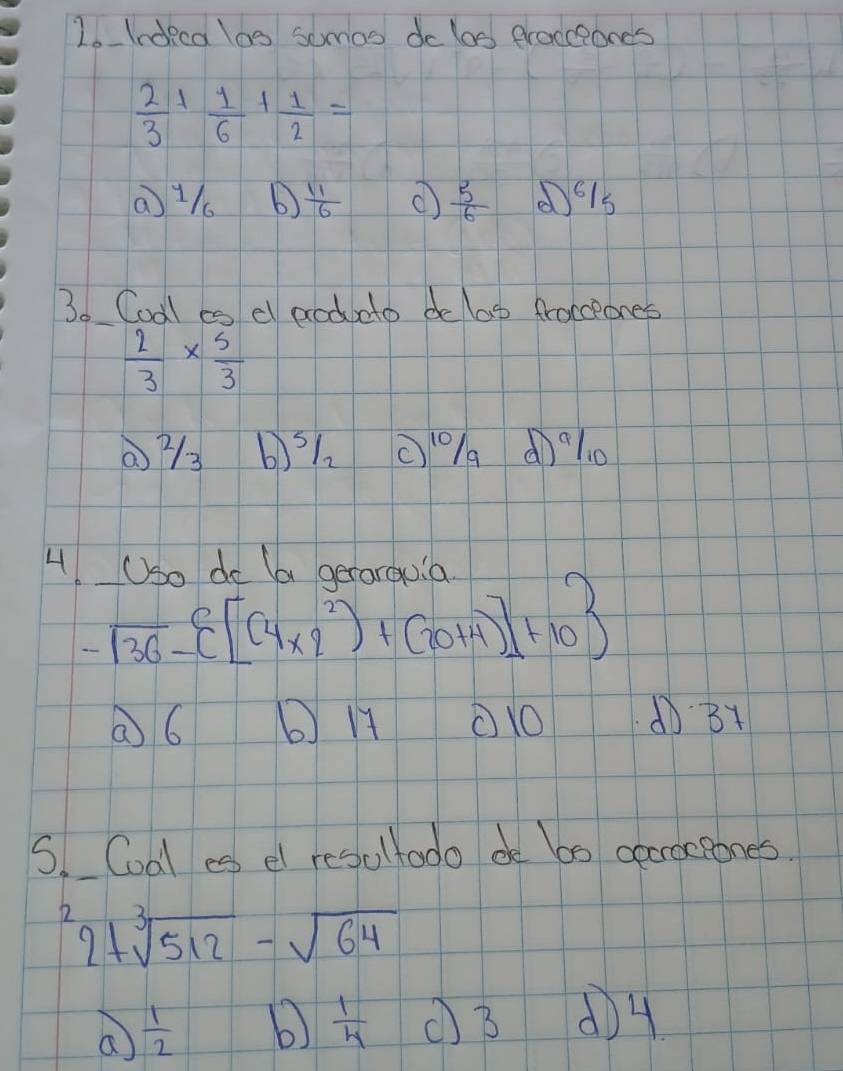 2.- Indica las sumas de las fracciones
2/3 + 1/6 + 1/2 =
a) 1/6 b) 11/6 c) 5/6 d) 6/5
3.- Cual es el producto de las fracciones
2/3 × 5/3
a) 2/3 b) 5/2 c) 10/9 d) 9/10
4.- Uso de la gerarquia
-√36 - {[(4×2²) + (20+4)] + 10}
a) 6 b) 17 c) 10 d) 37
5.- Cual es el resultado de las operaciones.
²2+³√512 - √64
a) 1/2 b) 1/4 c) 3 d) 4.